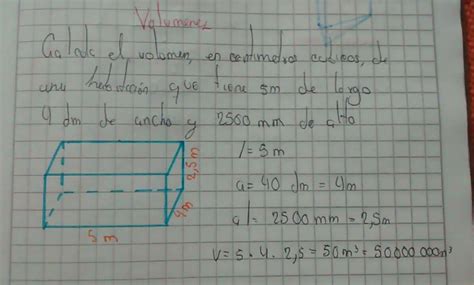 Volumenes
Calcula el volumen, en centimetros cubicos, de
una habitación que tiene 5m de largo
9 dm de ancho y 2500 mm de alto
l = 5m
a = 40 dm = 4m
al = 2500 mm = 2,5m
V = 5 · 4 · 2,5 = 50 m³ = 50000.000 m³
2,5m
4m
5 m